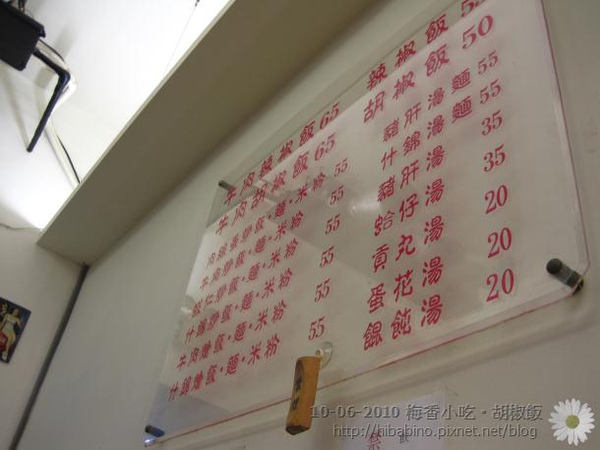 牛肉辣椒飯65
牛肉胡椒飯65
肉絲炒飯·麵·米粉 55
牛肉炒飯·麵·米粉 55
蝦仁炒飯·麵·米粉 55
什錦炒飯·麵·米粉 55
牛肉燴飯·麵·米粉 55
什錦燴飯·麵·米粉 55
辣椒飯 55
胡椒飯 50
豬肝湯麵 55
什錦湯麵 55
豬肝湯 35
蛤仔湯 35
貢丸湯 20
蛋花湯 20
餛飩湯 20
10-06-2010 梅香小吃·胡椒飯
http://hibabino.pixnet.net/blog